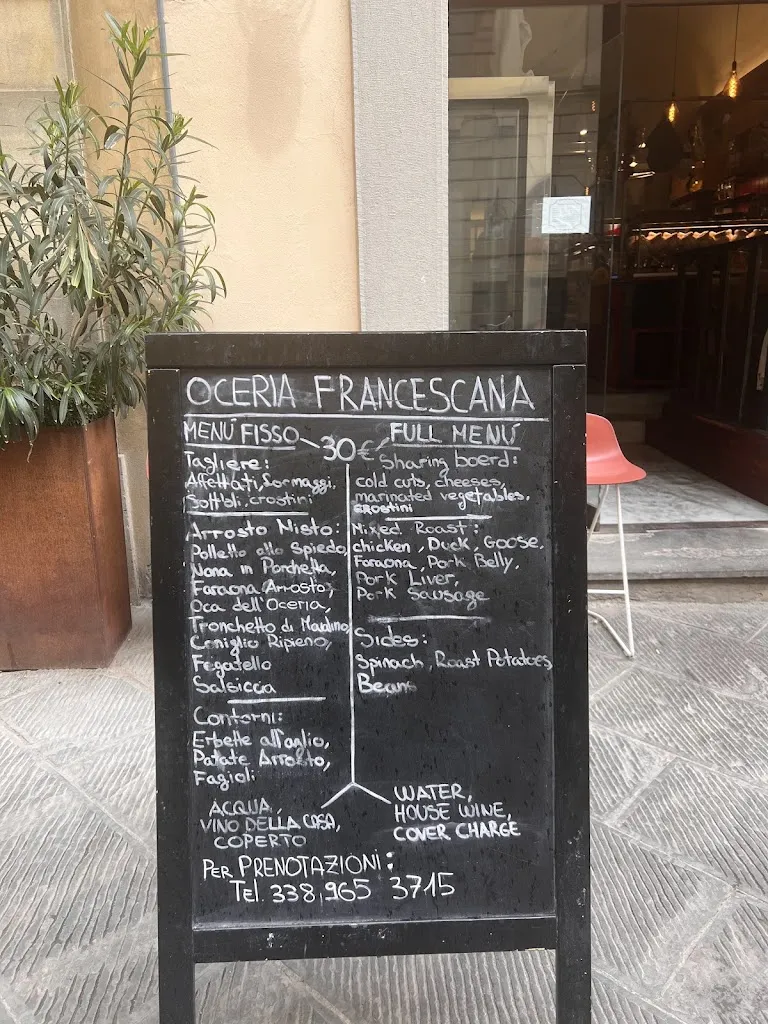 OCERIA FRANCESCANA
MENÚ FISSO 30€ FULL MENÚ
Tagliere:
Affettati, formaggi,
Sott'oli, crostini
Arrosto Misto:
Polletto allo Spiedo,
Nana in Porchetta,
Faraona Arrosto,
Oca dell'Oceria,
Tronchetto di
Coniglio Ripieno,
Fegatello
Salsiccia
Contorni:
Erbette all'aglio,
Patate Arrosto,
Fagioli
ACQUA,
VINO DELLA CASA,
COPERTO
Sharing boerd:
cold cuts, cheeses,
marinated vegetables,
crostini
Mixed Roast:
chicken, Duck, Goose,
Faraona, Pork Belly,
Pork Liver,
Pork Sausage
Sides:
Spinach, Roast Potatoes
Beans
WATER,
HOUSE WINE,
COVER CHARGE
PER PRENOTAZIONI:
Tel. 338,965 3715